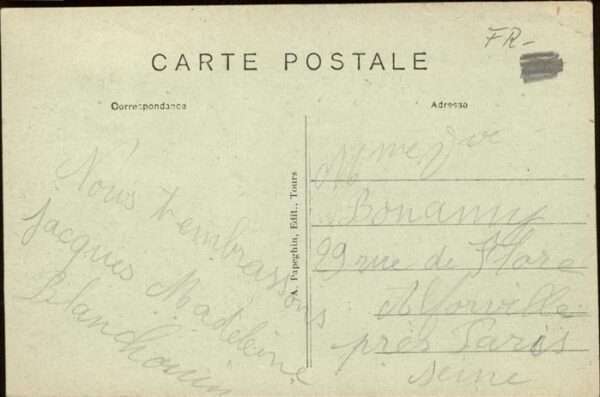 FR-
CARTE POSTALE
Correspondance
Adresse
Nous t'embrassons
Jacques Madeleine
A. Papeghin, Edit., Tours
Mme
Bonamy
99 rue de Flore
Alforville
près Paris
Seine